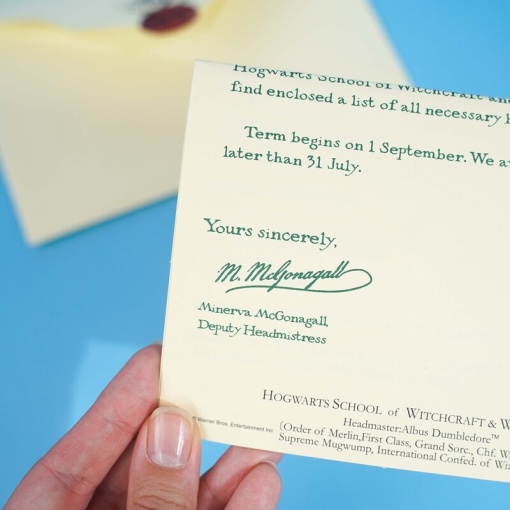 Hogwarts School of Witchcraft and
find enclosed a list of all necessary
Term begins on 1 September. We
later than 31 July.
Yours sincerely,
M. McGonagall
Minerva McGonagall,
Deputy Headmistress
HOGWARTS SCHOOL of WITCHCRAFT & W
Headmaster:Albus Dumbledore™
© Warner Bros. Entertainment Inc
(Order of Merlin,First Class, Grand Sorc., Chf. W
Supreme Mugwump, International Confed. of Wi